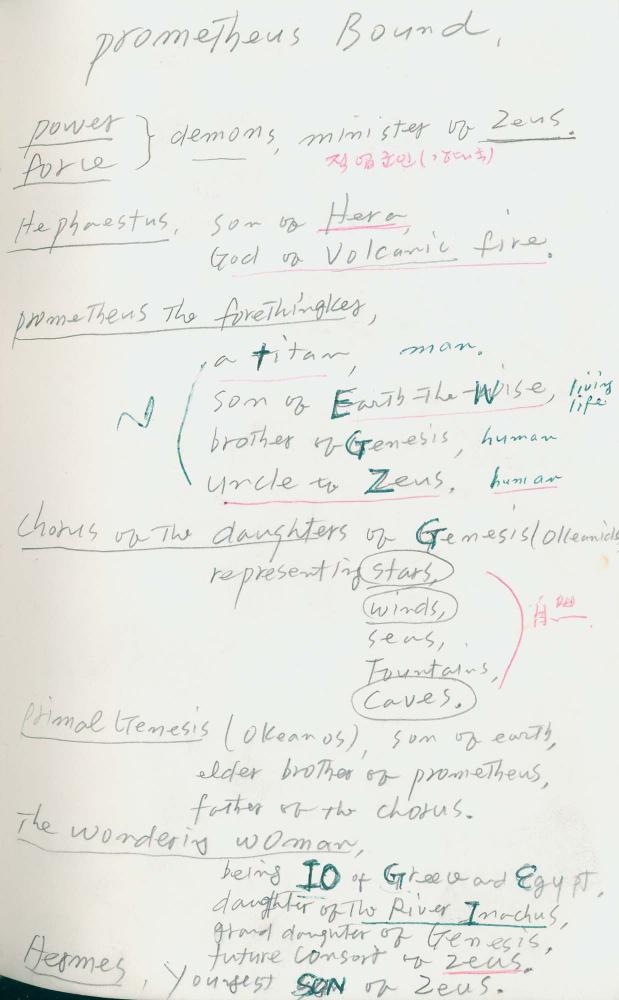 prometheus Bound.
power
force } demons, minister of Zeus.
직업군인
Hephaestus, son of Hera,
God of Volcanic fire.
prometheus the forethingker,
a titan, man.
son of Earth-The-Wise, living life
brother of Genesis, human
uncle to Zeus. human
Chorus of The daughters of Genesis (Okeanids
representing stars,
winds,
seas,
Fountains,
Caves.
primal Genesis (Okeanos), son of earth,
elder brother of prometheus,
father of the chorus.
The wondering wOman,
being IO of Greece and Egypt,
daughter of The River Inachus,
grand daughter of Genesis,
future Consort of Zeus.
Hermes, Youngest SON of Zeus.